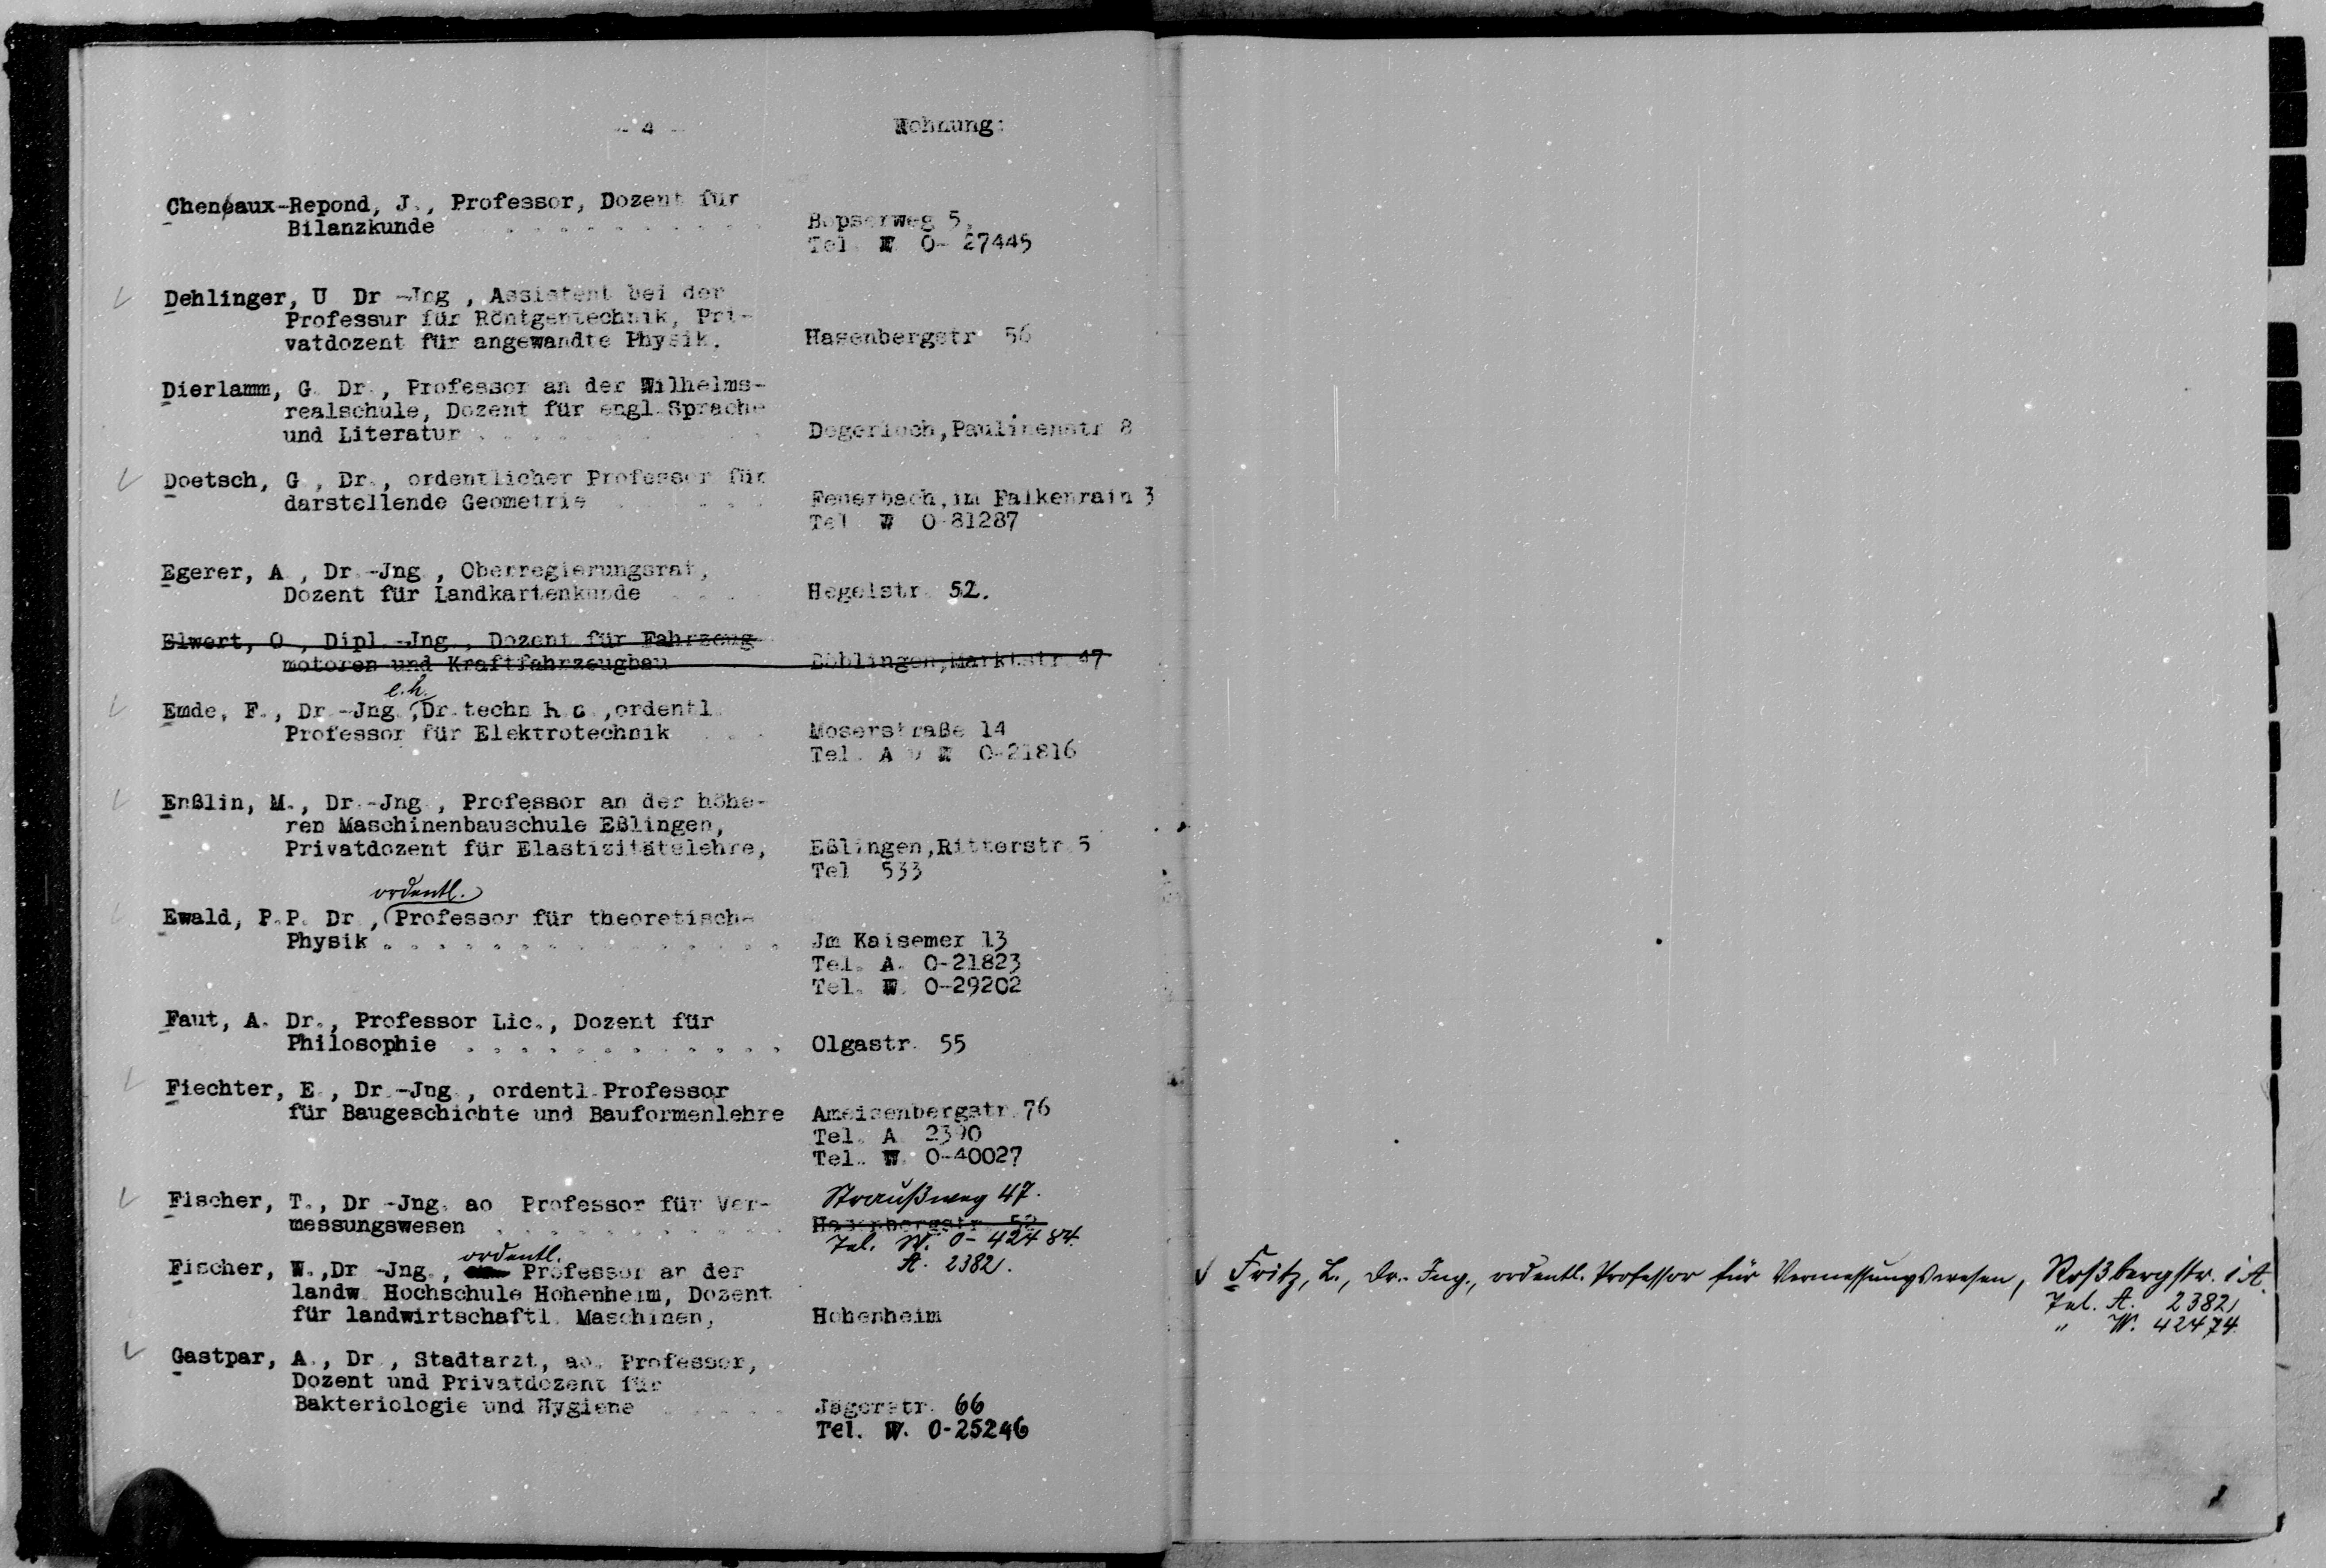 - 4 -
Wohnung:
Cheneaux-Repond, J., Professor, Dozent für
Bilanzkunde . . . . . . . . . . . .
Bopserweg 5,
Tel. W. 0- 27445
Dehlinger, U Dr -Jng , Assistent bei der
Professur für Röntgentechnik, Pri-
vatdozent für angewandte Physik.
Hasenbergstr 56
Dierlamm, G. Dr., Professor an der Wilhelms-
realschule, Dozent für engl.Sprache
und Literatur . . . . . . . . . . .
Degerloch,Paulinenstr 8
Doetsch, G., Dr., ordentlicher Professor für
darstellende Geometrie . . . . . .
Feuerbach,im Falkenrain 3
Tel W 0-81287
Egerer, A., Dr.-Jng., Oberregierungsrat,
Dozent für Landkartenkunde . . . .
Hegelstr. 52.
Elwert, O., Dipl.-Jng., Dozent für Fahrzeug-
motoren und Kraftfahrzeugbau
Böblingen,Marktstr.47
e.h.
Emde, F., Dr.-Jng.,Dr.techn h c.,ordentl.
Professor für Elektrotechnik . . .
Moserstraße 14
Tel. A u W 0-21816
Enßlin, M., Dr.-Jng., Professor an der höhe-
ren Maschinenbauschule Eßlingen,
Privatdozent für Elastizitätslehre,
Eßlingen,Ritterstr.5
Tel 533
ordentl.
Ewald, P.P. Dr., Professor für theoretische
Physik . . . . . . . . . . . . . . .
Jm Kaisemer 13
Tel. A. 0-21823
Tel. W. 0-29202
Faut, A. Dr., Professor Lic., Dozent für
Philosophie . . . . . . . . . . . .
Olgastr. 55
Fiechter, E., Dr.-Jng., ordentl.Professor
für Baugeschichte und Bauformenlehre
Ameisenbergstr.76
Tel. A. 2390
Tel. W. 0-40027
Straußweg 47.
Fischer, T., Dr -Jng. ao Professor für Ver-
messungswesen . . . . . . . . . . .
Hasenbergstr. 52
Tel. W. 0- 42484.
A. 2382.
ordentl.
Fischer, W.,Dr -Jng., Professor an der
landw. Hochschule Hohenheim, Dozent
für landwirtschaftl. Maschinen,
Hohenheim
Gastpar, A., Dr., Stadtarzt, ao. Professor,
Dozent und Privatdozent für
Bakteriologie und Hygiene . . . . .
Jägerstr. 66
Tel. W. 0-25246
Fritz, L., Dr.-Ing., ordentl. Professor für Vermessungswesen, Roßbergstr. 1 A.
Tel. A. 2382
" W. 42474.